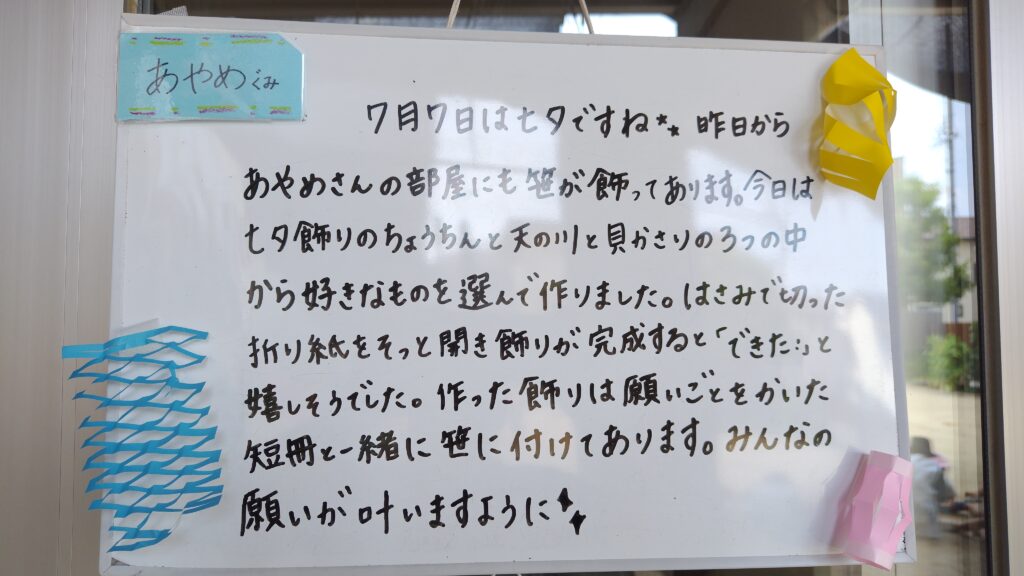 あやめぐみ
7月7日は七夕ですね 昨日から
あやめさんの部屋にも笹が飾ってあります。今日は
七夕飾りのちょうちんと天の川と貝かざりの3つの中
から好きなものを選んで作りました。はさみで切った
折り紙をそっと開き飾りが完成すると「できた:」と
嬉しそうでした。作った飾りは願いごとをかいた
短冊と一緒に笹に付けてあります。みんなの
願いが叶いますように